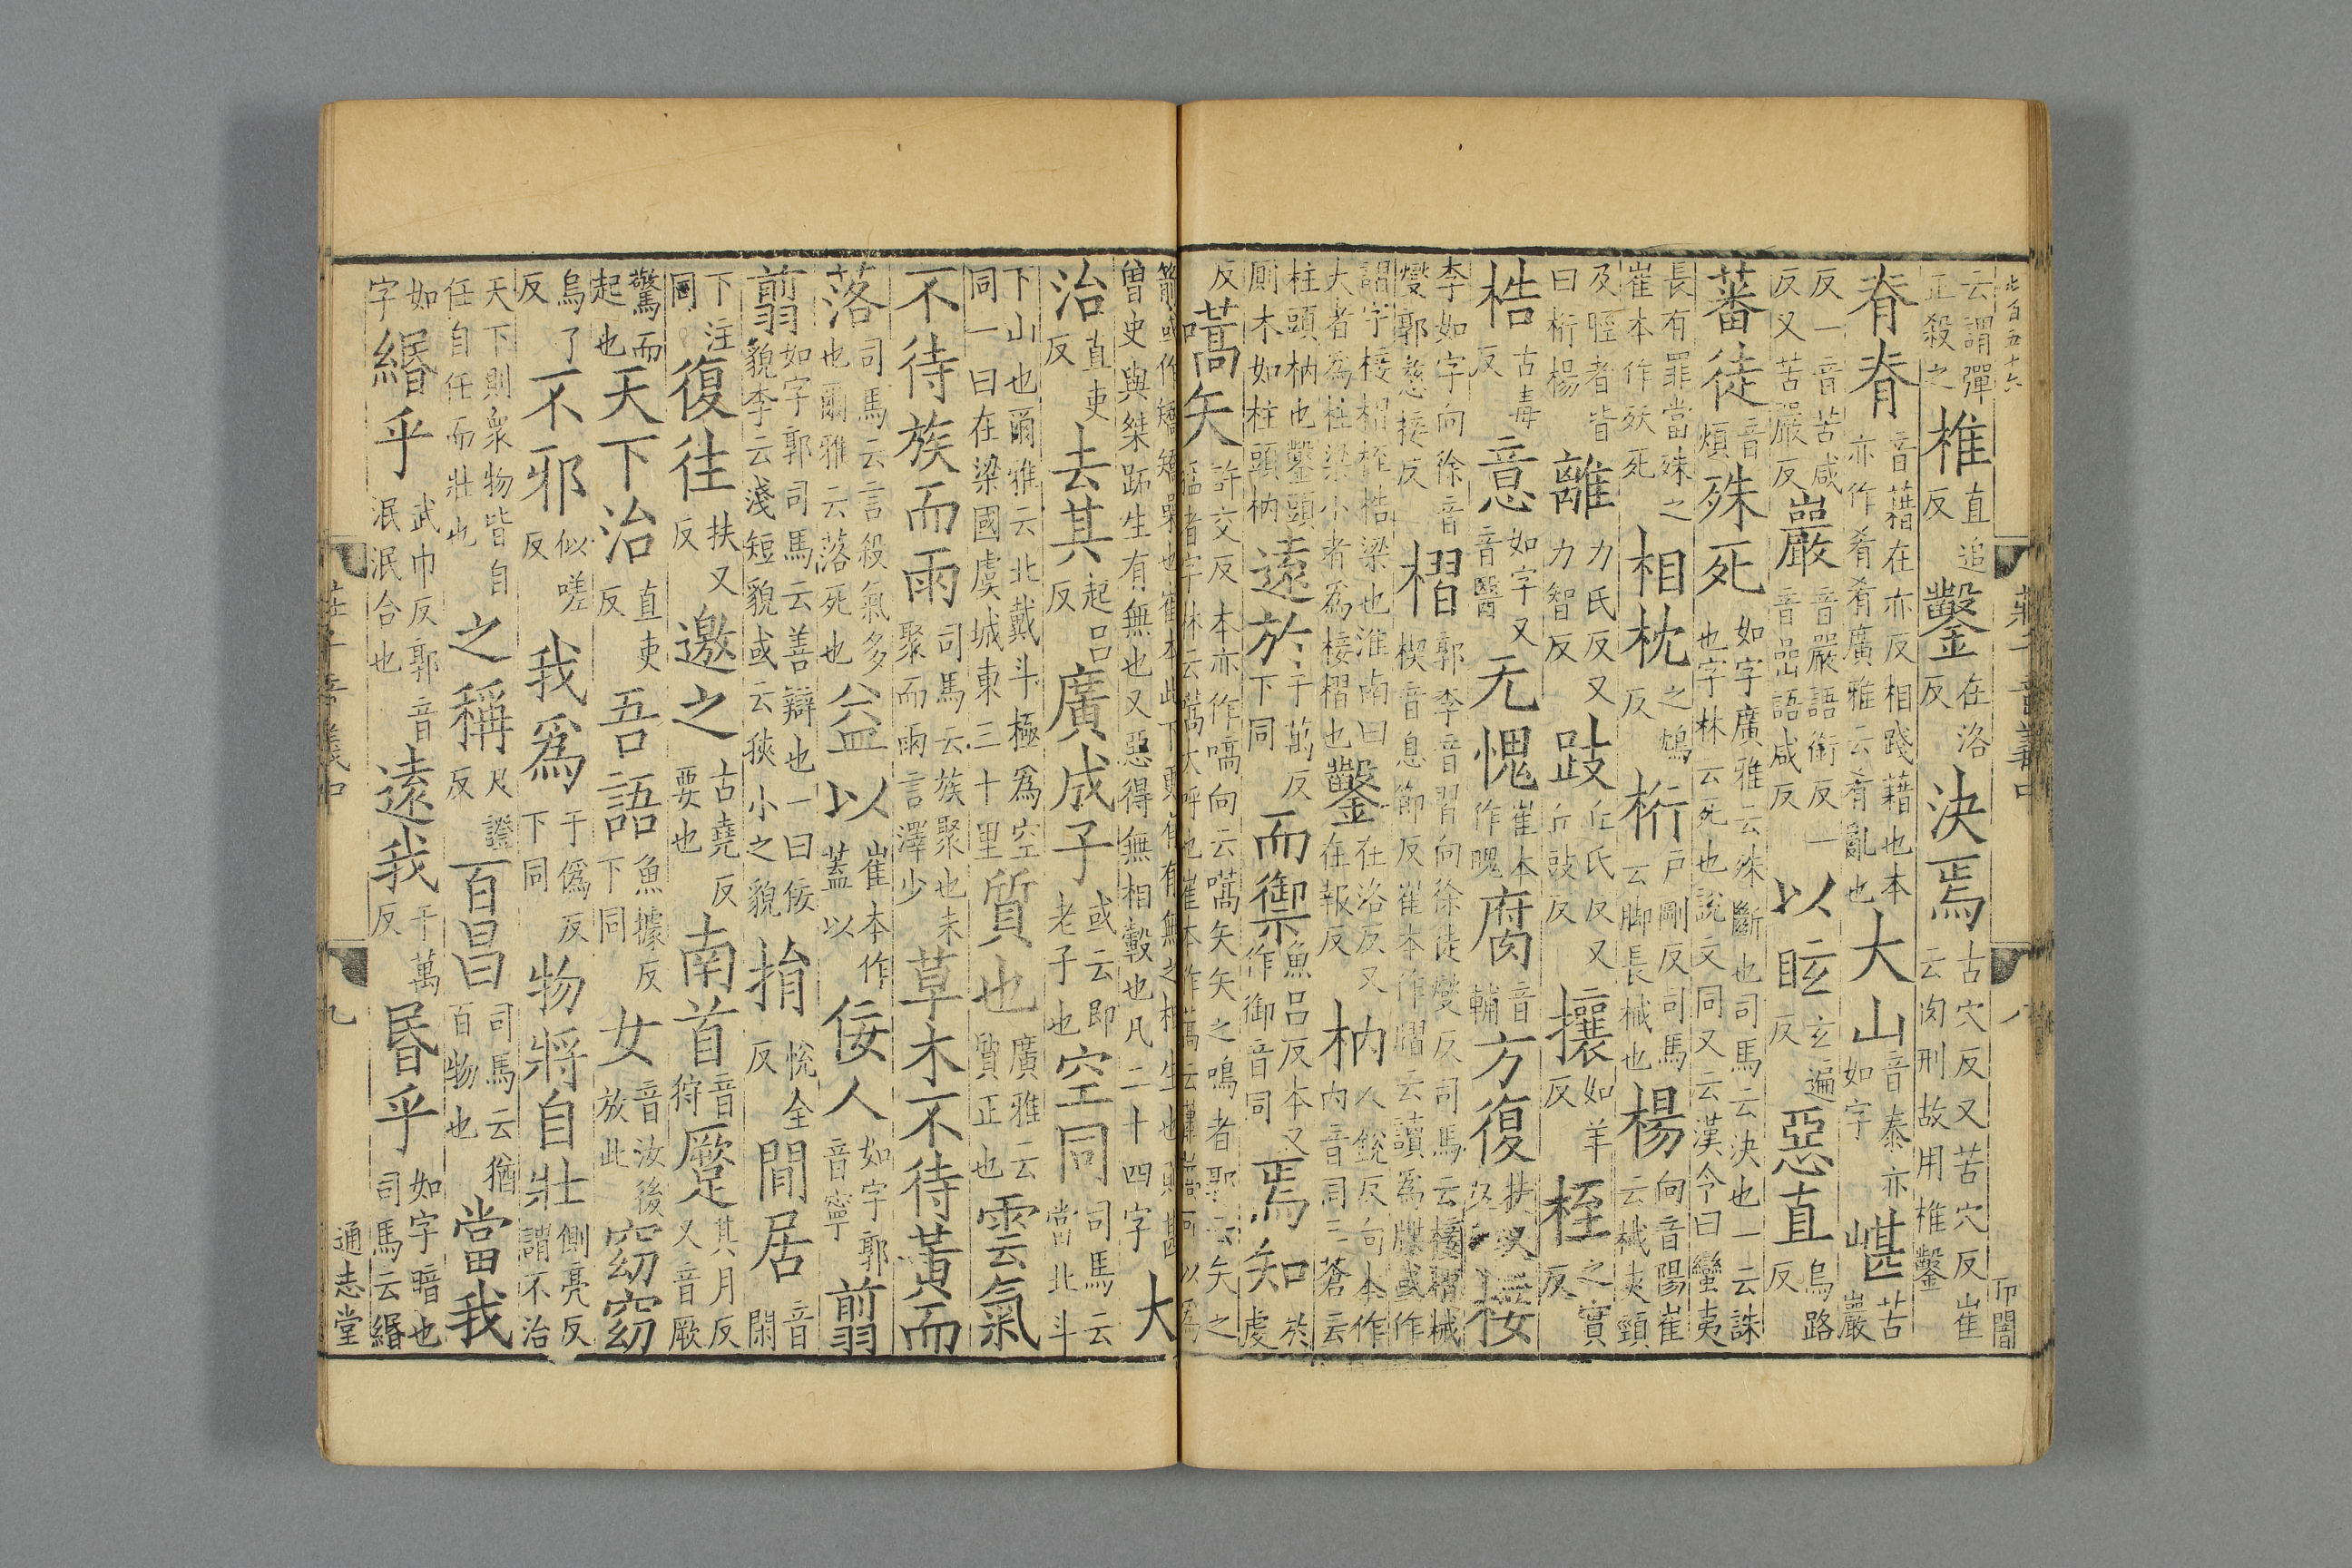 云謂彈正殺之 椎 直追反 鑿 在洛反 決焉 古穴反又苦穴反崔云肉刑故用椎鑿
脊脊 音藉在亦反相踐藉也本亦作肴肴廣雅云肴亂也 大山 音泰亦如字 嵁 苦巖
反一音苦咸反又苦嚴反 巖 音嚴語銜反一音喦語咸反 以眩 玄遍反 惡直 烏路反
蕃徒 音煩 殊死 如字廣雅云殊斷也司馬云決也一云誅也字林云死也說文同又云漢令曰蠻夷
長有罪當殊之崔本作殀死 相枕 之鴆反 桁 戶剛反司馬云脚長械也 楊 向音陽崔云械夾頸
及脛者皆曰桁楊 離 力氏反又力智反 跂 丘氏反又丘豉反 攘 如羊反 桎 之實反
梏 古毒反 意 如字又音醫 无愧 崔本作聭 腐 音輔 方復 扶又反 椄
李如字向徐音燮郭慈接反 槢 郭李音習向徐徒燮反司馬云椄槢械楔音息節反崔本作云讀為牒或作
謂字椄槢桎梏梁也淮南曰大者為柱梁小者為椄槢也 鑿 在洛反又在報反 枘 人銳反向本作內音同三蒼云
柱頭枘也鑿頭厠木如柱頭枘 遠於 于萬反下同 而禦 魚呂反本又作御音同 焉知 於虔
反 嚆矢 許交反本亦作嗃向云嚆矢矢之鳴者郭云矢之猛者字林云嚆大呼也崔本作蒿云蕭蒿可以為
莊子音義中 八
箭或作矯矯梟也崔本此下更有有無之相生也則甚曾史與桀跖生有無也又惡得無相轂也凡二十四字 大
治 直吏反 去其 起呂反 廣成子 或云即老子也 空同 司馬云當北斗
下山也爾雅云北戴斗極為空同一曰在梁國虞城東三十里 質也 廣雅云質正也 雲氣
不待族而雨 司馬云族聚也未聚而雨言澤少 草木不待黃而
落 司馬云言殺氣多也爾雅云落死也 益以 崔本作蓋以 佞人 如字郭音寧 翦
翦 如字郭司馬云善辯也一曰佞貌李云淺短貌或云狹小之貌 捐 悅全反 間居 音閑
下注同 復往 扶又反 邀之 古堯反要也 南首 音狩 蹷 其月反又音厥
驚而起也 天下治 直吏反 吾語 魚據反下同 女 音汝後放此 窈窈
烏了反 不邪 似嗟反 我為 于偽反下同 物將自壯 側亮反謂不治
天下則眾物皆自任自任而壯也 之稱 尺證反 百昌 司馬云猶百物也 當我
如字 緡乎 武巾反郭音泯泯合也 遠我 音于萬反 昬乎 如字暗也司馬云緡
莊子音義中 九 通志堂